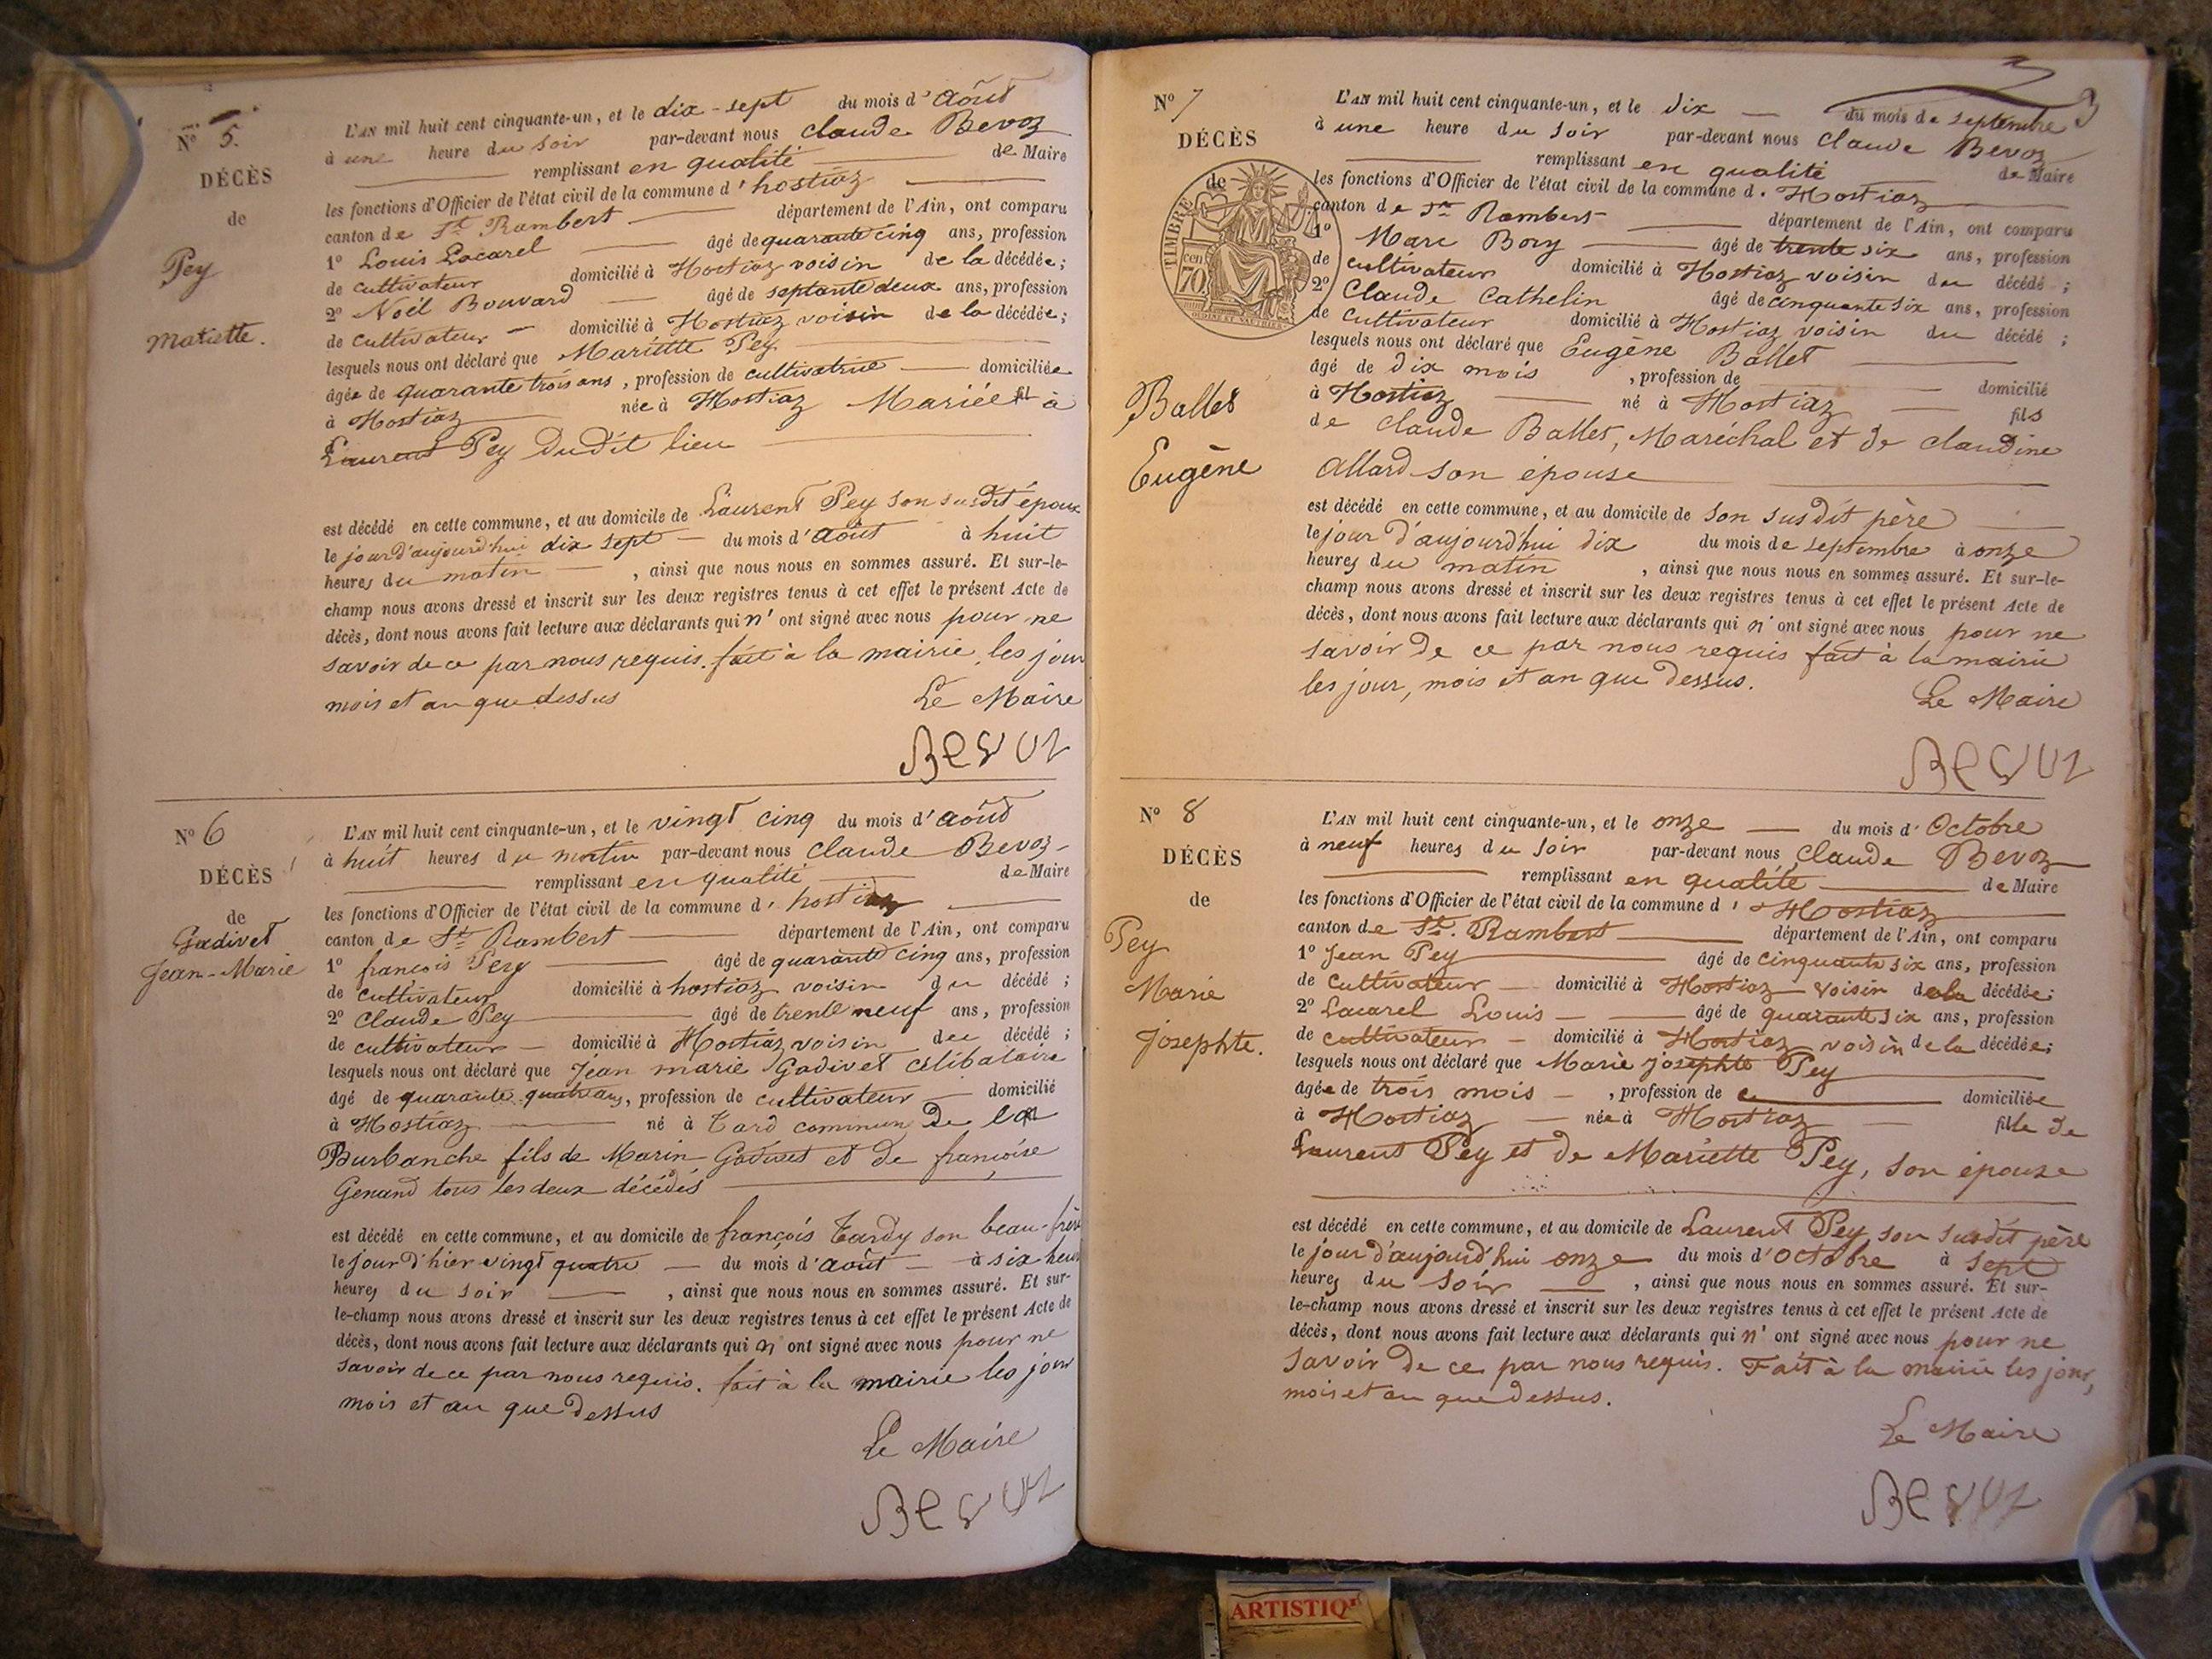 Nº 5.
DÉCÈS
de
Pey
Mariette.
L'AN mil huit cent cinquante-un, et le dix-sept du mois d'Aôut
à une heure du soir par-devant nous Claude Bevoz
remplissant en qualité de Maire
les fonctions d'Officier de l'état civil de la commune d'hostiaz
canton de St Rambert département de l'Ain, ont comparu
1º Louis Lacarel âgé de quarante cinq ans, profession
de cultivateur domicilié à Hostiaz voisin de la décédée;
2º Noël Bouvard âgé de septante deux ans, profession
de cultivateur domicilié à Hostiaz voisin de la décédée;
lesquels nous ont déclaré que Mariette Pey
âgée de quarante trois ans, profession de cultivatrice domiciliée
à Hostiaz née à Hostiaz Mariée à
Laurent Pey dudit lieu
est décédé en cette commune, et au domicile de Laurent Pey son susdit époux
le jour d'aujourd'hui dix sept du mois d'aôut à huit
heures du matin, ainsi que nous nous en sommes assuré. Et sur-le-
champ nous avons dressé et inscrit sur les deux registres tenus à cet effet le présent Acte de
décès, dont nous avons fait lecture aux déclarants qui n'ont signé avec nous pour ne
savoir de ce par nous requis. fait à la mairie, les jour
mois et an que dessus
Le Maire
Bevoz
Nº 6
DÉCÈS
de
Gadivet
Jean-Marie
L'AN mil huit cent cinquante-un, et le vingt cinq du mois d'aôut
à huit heures du matin par-devant nous Claude Bevoz
remplissant en qualité de Maire
les fonctions d'Officier de l'état civil de la commune d'hostiaz
canton de St Rambert département de l'Ain, ont comparu
1º françois Pey âgé de quarante cinq ans, profession
de cultivateur domicilié à hostiaz voisin du décédé;
2º Claude Pey âgé de trente neuf ans, profession
de cultivateur domicilié à Hostiaz voisin du décédé;
lesquels nous ont déclaré que Jean marie Gadivet célibataire
âgé de quarante quatre ans, profession de cultivateur domicilié
à Hostiaz né à Tard commune de la
Burbanche fils de Marin Gadivet et de françoise
Genand tous les deux décédés
est décédé en cette commune, et au domicile de françois Tardy son beau-frère
le jour d'hier vingt quatre du mois d'aout à six heur
heures du soir, ainsi que nous nous en sommes assuré. Et sur-
le-champ nous avons dressé et inscrit sur les deux registres tenus à cet effet le présent Acte de
décès, dont nous avons fait lecture aux déclarants qui n' ont signé avec nous pour ne
savoir de ce par nous requis. fait à la mairie les jour
mois et an que dessus
Le Maire
Bevoz
Nº 7
DÉCÈS
de
TIMBRE
70 cen
Ballet
Eugène
L'AN mil huit cent cinquante-un, et le dix du mois de septembre
à une heure du soir par-devant nous Claude Bevoz
remplissant en qualité de Maire
les fonctions d'Officier de l'état civil de la commune d'Hostiaz
canton de St Rambert département de l'Ain, ont comparu
1º Marc Bory âgé de trente six ans, profession
de cultivateur domicilié à Hostiaz voisin du décédé;
2º Claude Cathelin âgé de cinquante six ans, profession
de cultivateur domicilié à Hostiaz voisin du décédé;
lesquels nous ont déclaré que Eugène Ballet
âgé de dix mois, profession de domicilié
à Hostiaz né à Hostiaz fils
de Claude Ballet, Maréchal et de claudine
Allard son épouse
est décédé en cette commune, et au domicile de son susdit père
le jour d'aujourd'hui dix du mois de septembre à onze
heures du matin, ainsi que nous nous en sommes assuré. Et sur-le-
champ nous avons dressé et inscrit sur les deux registres tenus à cet effet le présent Acte de
décès, dont nous avons fait lecture aux déclarants qui n'ont signé avec nous pour ne
savoir de ce par nous requis fait à la mairie
les jour, mois et an que dessus.
Le Maire
Bevoz
Nº 8
DÉCÈS
de
Pey
Marie
Josephte.
L'AN mil huit cent cinquante-un, et le onze du mois d'Octobre
à neuf heures du soir par-devant nous Claude Bevoz
remplissant en qualité de Maire
les fonctions d'Officier de l'état civil de la commune d'Hostiaz
canton de St. Rambert département de l'Ain, ont comparu
1º Jean Pey âgé de cinquante six ans, profession
de cultivateur domicilié à Hostiaz voisin de la décédée;
2º Lacarel Louis âgé de quarante six ans, profession
de cultivateur domicilié à Hostiaz voisin de la décédée;
lesquels nous ont déclaré que Marie josephte Pey
âgée de trois mois, profession de domiciliée
à Hostiaz née à Hostiaz fille de
Laurent Pey et de Mariette Pey, son épouse
est décédé en cette commune, et au domicile de Laurent Pey son susdit père
le jour d'aujourd'hui onze du mois d'octobre à sept
heures du soir, ainsi que nous nous en sommes assuré. Et sur-
le-champ nous avons dressé et inscrit sur les deux registres tenus à cet effet le présent Acte de
décès, dont nous avons fait lecture aux déclarants qui n'ont signé avec nous pour ne
savoir de ce par nous requis. Fait à la mairie les jour,
mois et an que dessus.
Le Maire
Bevoz
ARTISTIQ